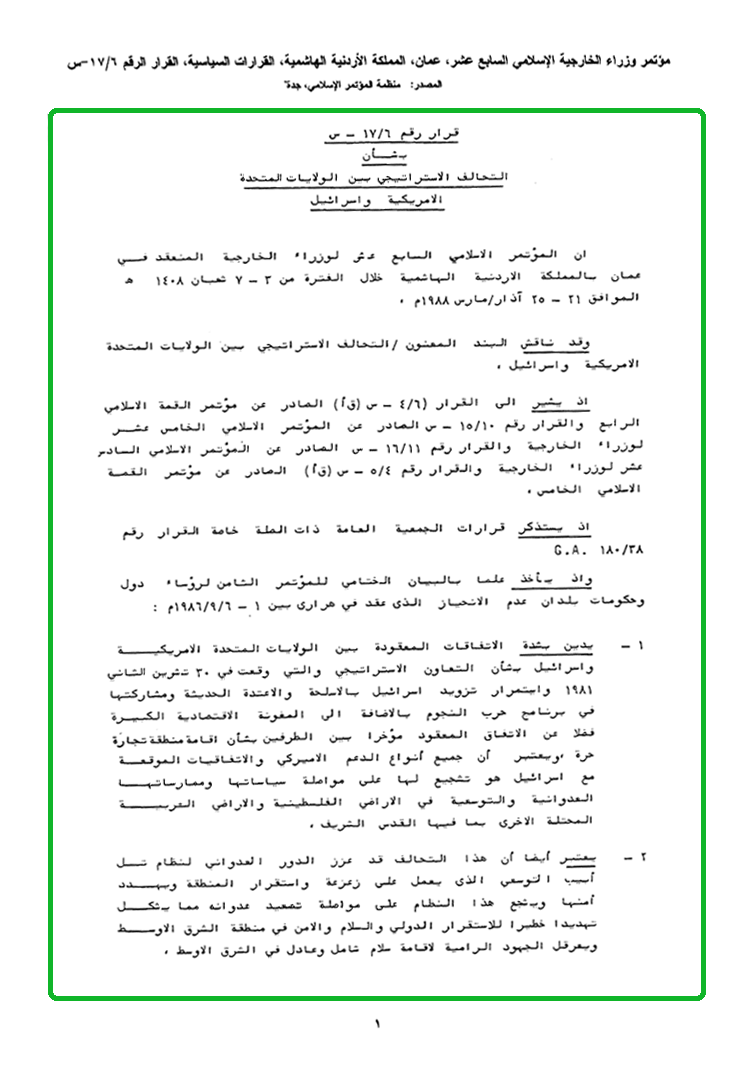 مؤتمر وزراء الخارجية الإسلامي السابع عشر، عمان، المملكة الأردنية الهاشمية، القرارات السياسية، القرار الرقم ١٧/٦-س
المصدر: منظمة المؤتمر الإسلامي، جدة٦
قرار رقم ١٧/٦ – س
بشـــأن
التحالف الاستراتيجي بين الولايات المتحدة
الامريكية واسرائيل
ان المؤتمر الاسلامي السابع عش لوزراء الخارجية المنعقد فـــي
عمان بالمملكة الاردنية الهاشمية خلال الفترة من ٣ – ٧ شعبان ١٤٠٨ هـ
الموافق ٢١ – ٢٥ آذار/مارس ١٩٨٨م ،
وقد ناقش البند المعنون /التحالف الاستراتيجي بين الولايات المتحدة
الامريكية واسرائيل ،
اذ يشير الى القرار (٤/٦ – س (ق أ) الصادر عن مؤتمر القمة الاسلامي
الرابع والقرار رقم ١٥/١٠ – س الصادر عن المؤتمر الاسلامي الخامس عشـــر
لوزراء الخارجية والقرار رقم ١٦/١١ – س الصادر عن المؤتمر الاسلامي السادس
عشر لوزراء الخارجية والقرار رقم ٥/٤ – س (ق أ) الصادر عن مؤتمر القمة
الاسلامي الخامس ،
اذ يستذكر قرارات الجمعية العامة ذات الصلة خاصة القرار رقم
١٨٠/٣٨ G.A.
واذ يأخذ علما بالبيان الختامي للمؤتمر الثامن لرؤساء دول
وحكومات بلدان عدم الانحياز الذى عقد في هرارى بين ١ – ١٩٨٦/٩/٦م :
١ – يدين بشدة الاتفاقات المعقودة بين الولايات المتحدة الامريكيـــــة
واسرائيل بشأن التعاون الاستراتيجي والتي وقعت في ٣٠ تشرين الثاني
١٩٨١ واستمرار تزويد اسرائيل بالاسلحة والاعتدة الحديثة ومشاركتها
في برنامج حرب النجوم بالاضافة الى المعونة الاقتصادية الكبيرة
فضلا عن الاتفاق المعقود مؤخرا بين الطرفين بشأن اقامة منطقة تجارة
حرة ،ويعتبر أن جميع أنواع الدعم الاميركي والاتفاقيات الموقعـــة
مع اسرائيل هو تشجيع لها على مواصلة سياساتها وممارساتهـــــا
العدوانية والتوسعية في الاراضي الفلسطينية والاراضي العربيـــــة
المحتلة الاخرى بما فيها القدس الشريف ،
٢ – يعتبر أيضا أن هذا التحالف قد عزز الدور العدواني لنظام تـــل
أبيب التوسعي الذى يعمل على زعزعة واستقرار المنطقة ويهـــدد
أمنها ويشجع هذا النظام على مواصلة تصعيد عدوانه مما يشكـــل
تهديدا خطيرا للاستقرار الدولي والسلام والامن في منطقة الشرق الاوســـط
ويعرقل الجهود الرامية لاقامة سلام شامل وعادل في الشرق الاوسط ،
١